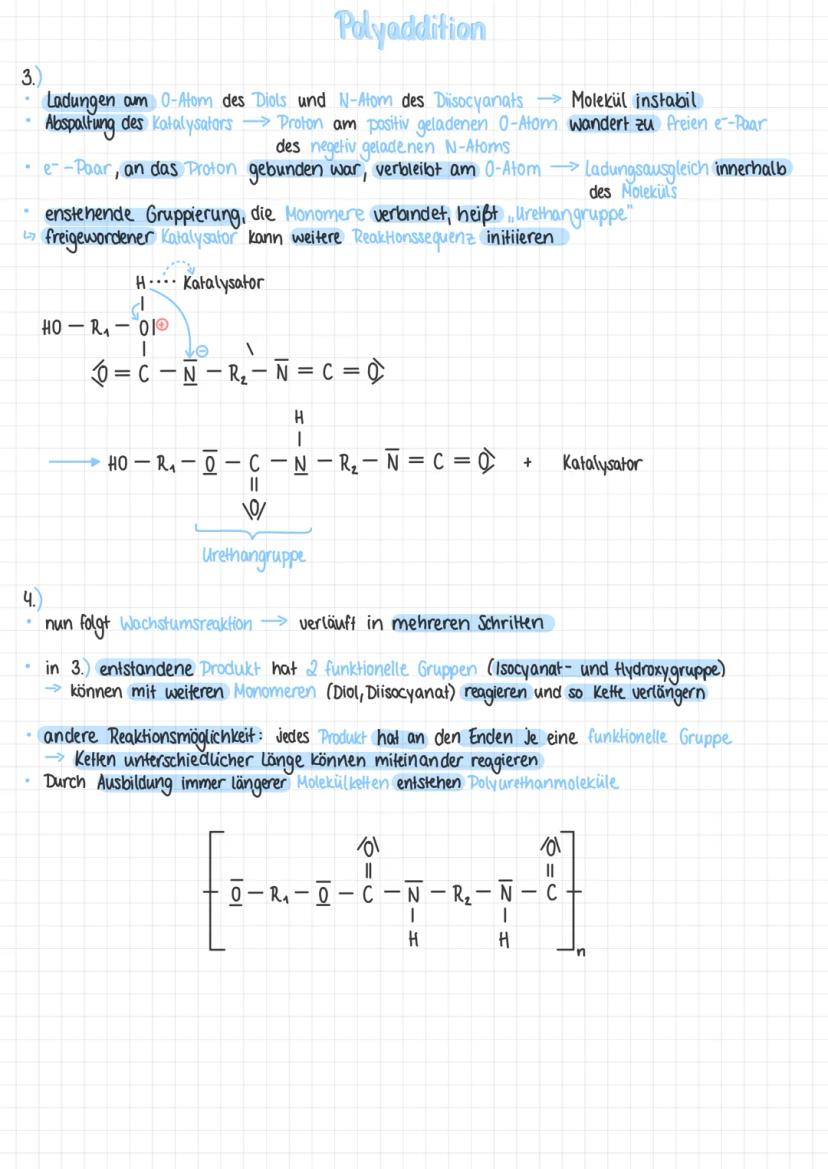 Polyaddition
3.)
• Ladungen am O-Atom des Diols und N-Atom des Diisocyanats → Molekül instabil
• Abspaltung des Katalysators → Proton am positiv geladenen O-Atom wandert zu freien e⁻-Paar
des negetiv geladenen N-Atoms
• e⁻-Paar, an das Proton gebunden war, verbleibt am O-Atom → Ladungsausgleich innerhalb
des Moleküls
• enstehende Gruppierung, die Monomere verbindet, heißt „Urethangruppe"
↳ freigewordener Katalysator kann weitere Reaktionssequenz initiieren
H ···· Katalysator
HO – R₁ – O| ⊕
⊖
O = C – N – R₂ – N = C = O
H
→ HO – R₁ – O – C – N – R₂ – N = C = O + Katalysator
O
Urethangruppe
4.)
• nun folgt Wachstumsreaktion → verläuft in mehreren Schritten
• in 3.) entstandene Produkt hat 2 funktionelle Gruppen (Isocyanat- und Hydroxygruppe)
→ können mit weiteren Monomeren (Diol, Diisocyanat) reagieren und so Kette verlängern
• andere Reaktionsmöglichkeit: jedes Produkt hat an den Enden je eine funktionelle Gruppe
→ Ketten unterschiedlicher Länge können miteinander reagieren
• Durch Ausbildung immer längerer Molekülketten entstehen Polyurethanmoleküle
O O
O – R₁ – O – C – N – R₂ – N – C
H H
n